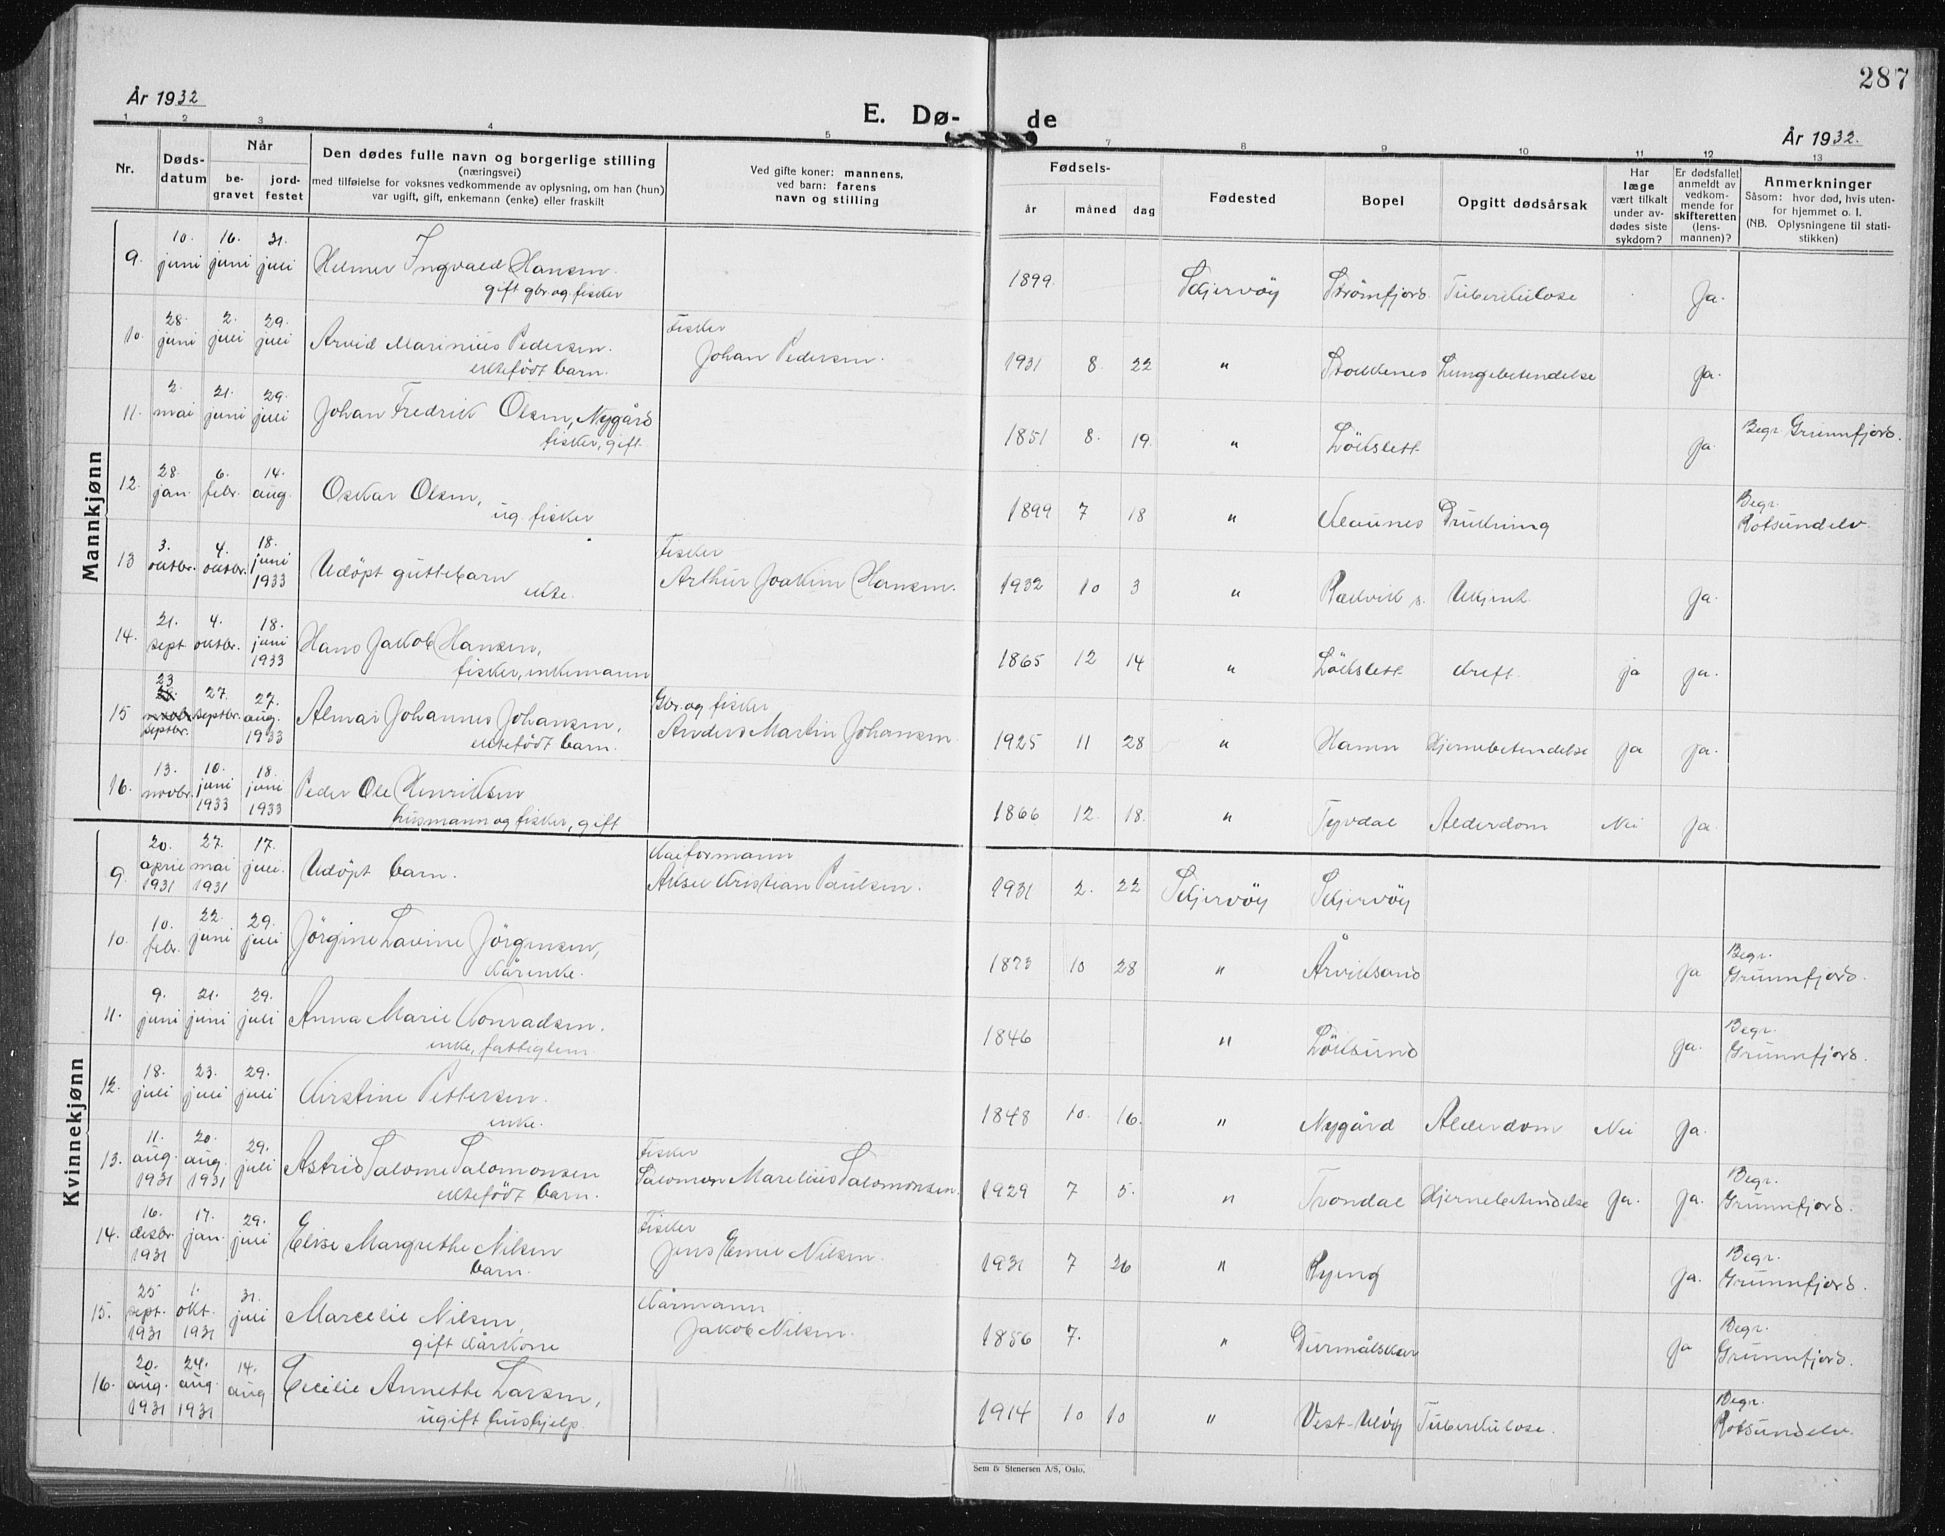 287
År 1932
E. Dø- de
År 1932.
1 2 3 4 5 7 8 9 10 11 12 13
Nr.
Døds-
datum
Når
be-
gravet
jord-
festet
Den dødes fulle navn og borgerlige stilling
(næringsvei)
med tilføielse for voksnes vedkommende av oplysning, om han (hun)
var ugift, gift, enkemann (enke) eller fraskilt
Ved gifte koner: mannens,
ved barn: farens
navn og stilling
Fødsels-
år måned dag
Fødested
Bopel
Opgitt dødsårsak
Har
læge
vært tilkalt
under av-
dødes siste
sykdom?
Er dødsfallet
anmeldt av
vedkom-
mende for
skifteretten
(lens-
mannen)?
Anmerkninger
Såsom: hvor død, hvis uten-
for hjemmet o. l.
(NB. Oplysningene til stati-
stikken)
Mannkjønn
9. 10. juni 16. juni 31. juli Helmer Ingvald Hansen.
gift gbr. og fisker
1899. Skjervöy Strømfjord. Tuberkulose Ja.
10. 28. juni 2. juli 29. juli Arvid Marinius Pedersen.
ektefödt barn.
Fisker
Johan Pedersen.
1931 8. 22 " Stokkenes Lungebetendelse Ja.
11. 2. mai 21. juni 29. juli Johan Fredrik Olsen, Nygård
fisker, gift.
1851 8. 19. " Lökslett Ja. Begr. Grunnfjord.
12. 28. jan. 6. febr. 14. aug. Oskar Olsen,
ug. fisker
1899 7 18 " Klaunes Drukning Begr.
Rotsundelv.
13 3. oktbr. 4. oktbr. 18. juni 1933 Udöpt guttebarn
ekte.
Fisker
Arthur Joakim Hansen.
1932 10 3 " Rækvik s. Ukjent. Ja.
14. 21. sept 4. oktbr. 18. juni 1933 Hans Jakob Hansen,
fisker, enkemann
1865 12 14 " Lökslett kreft. ja ja.
15 23 septbr. 27. septbr. 27. aug. 1933 Almar Johannes Johansen,
ektefödt barn.
Gbr. og fisker
Anders Martin Johansen
1925 11 28 " Hamn Hjernebetendelse ja ja.
16. 13. novbr. 10. juni 1933 18. juni 1933 Peder Ole Henriksen
husmann og fisker, gift
1866 12. 18. " Tyvdal Alderdom Nei Ja.
Kvinnekjønn
9. 20. april 1931 27. mai 1931 17. juli. Udöpt barn.
Kaiformann
Aksel Kristian Paulsen.
1931 2. 22 Skjervöy Skjervöy
10. 10. febr. 22. juni 29. juli Jörgine Lavine Jörgensen,
kårenke.
1873 10 28 " Årviksand Ja Begr.
Grunnfjord.
11. 9. juni 21. juni 29. juli Anna Marie Konradsen.
enke, fattiglem.
1846 " Löksund Ja. Begr.
Grunnfjord.
12. 18. juli 23. juli 29. juli Kirstine Pettersen.
enke.
1848 10. 16. " Nygård Alderdom Nei Ja.
13. 11. aug. 1931 20. aug. 1931 29. juli Astrid Salome Salomonsen
ektefödt barn.
Fisker
Salomon Marelius Salomonsen.
1929 7 5. " Trondal Hjernebetendelse Ja. Ja. Begr.
Grunnfjord.
14. 16. desbr. 1931 17. jan. 29. juli Elise Margrethe Nilsen
barn.
Fisker
Jens Emil Nilsen.
1931 7 26 " Ryeng Ja. Begr.
Grunnfjord.
15. 25 sept. 1931 1. okt. 1931 31. juli Marcelie Nilsen,
gift kårkone
Kårmann
Jakob Nilsen.
1856 7. " Durmålskar Ja Begr.
Grunnfjord.
16. 20. aug. 1931 24. aug. 1931 14. aug Cecilie Annette Larsen,
ugift hushjelp.
1914 10 10 " Vest-Uløy Tuberkulose. Begr.
Rotsundelv.
Sem & Stenersen A/S, Oslo.